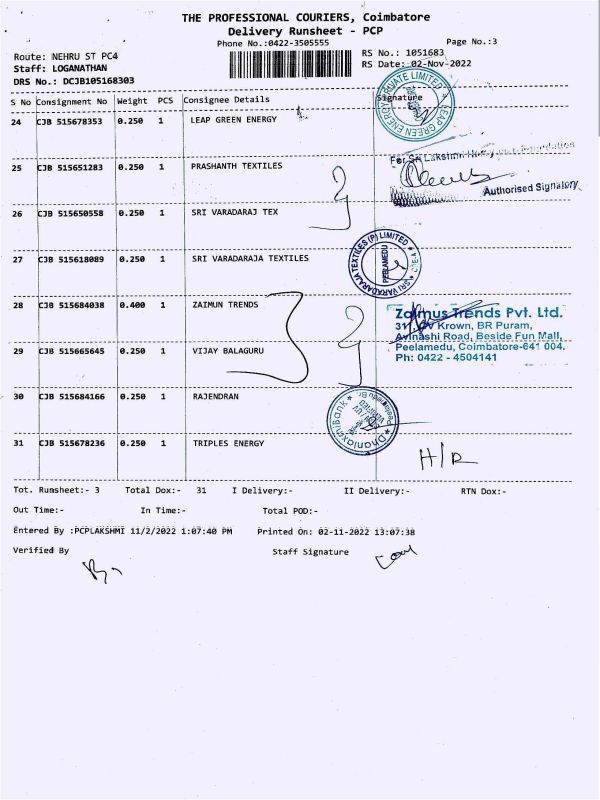 THE PROFESSIONAL COURIERS, Coimbatore
Delivery Runsheet - PCP
Phone No.:0422-3505555
Page No.:3
Route: NEHRU ST PC4
RS No.: 1051683
Staff: LOGANATHAN
RS Date: 02-Nov-2022
DRS No.: DCJB105168303
S No Consignment No Weight PCS Consignee Details Signature
24 CJB 515678353 0.250 1 LEAP GREEN ENERGY
LEAP GREEN ENERGY PRIVATE LIMITED
25 CJB 515651283 0.250 1 PRASHANTH TEXTILES
For Sri Lakshmi
Authorised Signatory
26 CJB 515650558 0.250 1 SRI VARADARAJ TEX
27 CJB 515618089 0.250 1 SRI VARADARAJA TEXTILES
SRI VARADARAJA TEXTILES (P) LIMITED
PEELAMEDU
28 CJB 515684038 0.400 1 ZAIMUN TRENDS
Zaimus Trends Pvt. Ltd.
Krown, BR Puram,
Avinashi Road, Beside Fun Mall,
Peelamedu, Coimbatore-641 004.
Ph: 0422 - 4504141
29 CJB 515665645 0.250 1 VIJAY BALAGURU
30 CJB 515684166 0.250 1 RAJENDRAN
Dhanlaxmi Bank
Peelamedu Br.
31 CJB 515678236 0.250 1 TRIPLES ENERGY
H/R
Tot. Runsheet:- 3 Total Dox:- 31 I Delivery:- II Delivery:- RTN Dox:-
Out Time:- In Time:- Total POD:-
Entered By :PCPLAKSHMI 11/2/2022 1:07:40 PM Printed On: 02-11-2022 13:07:38
Verified By Staff Signature